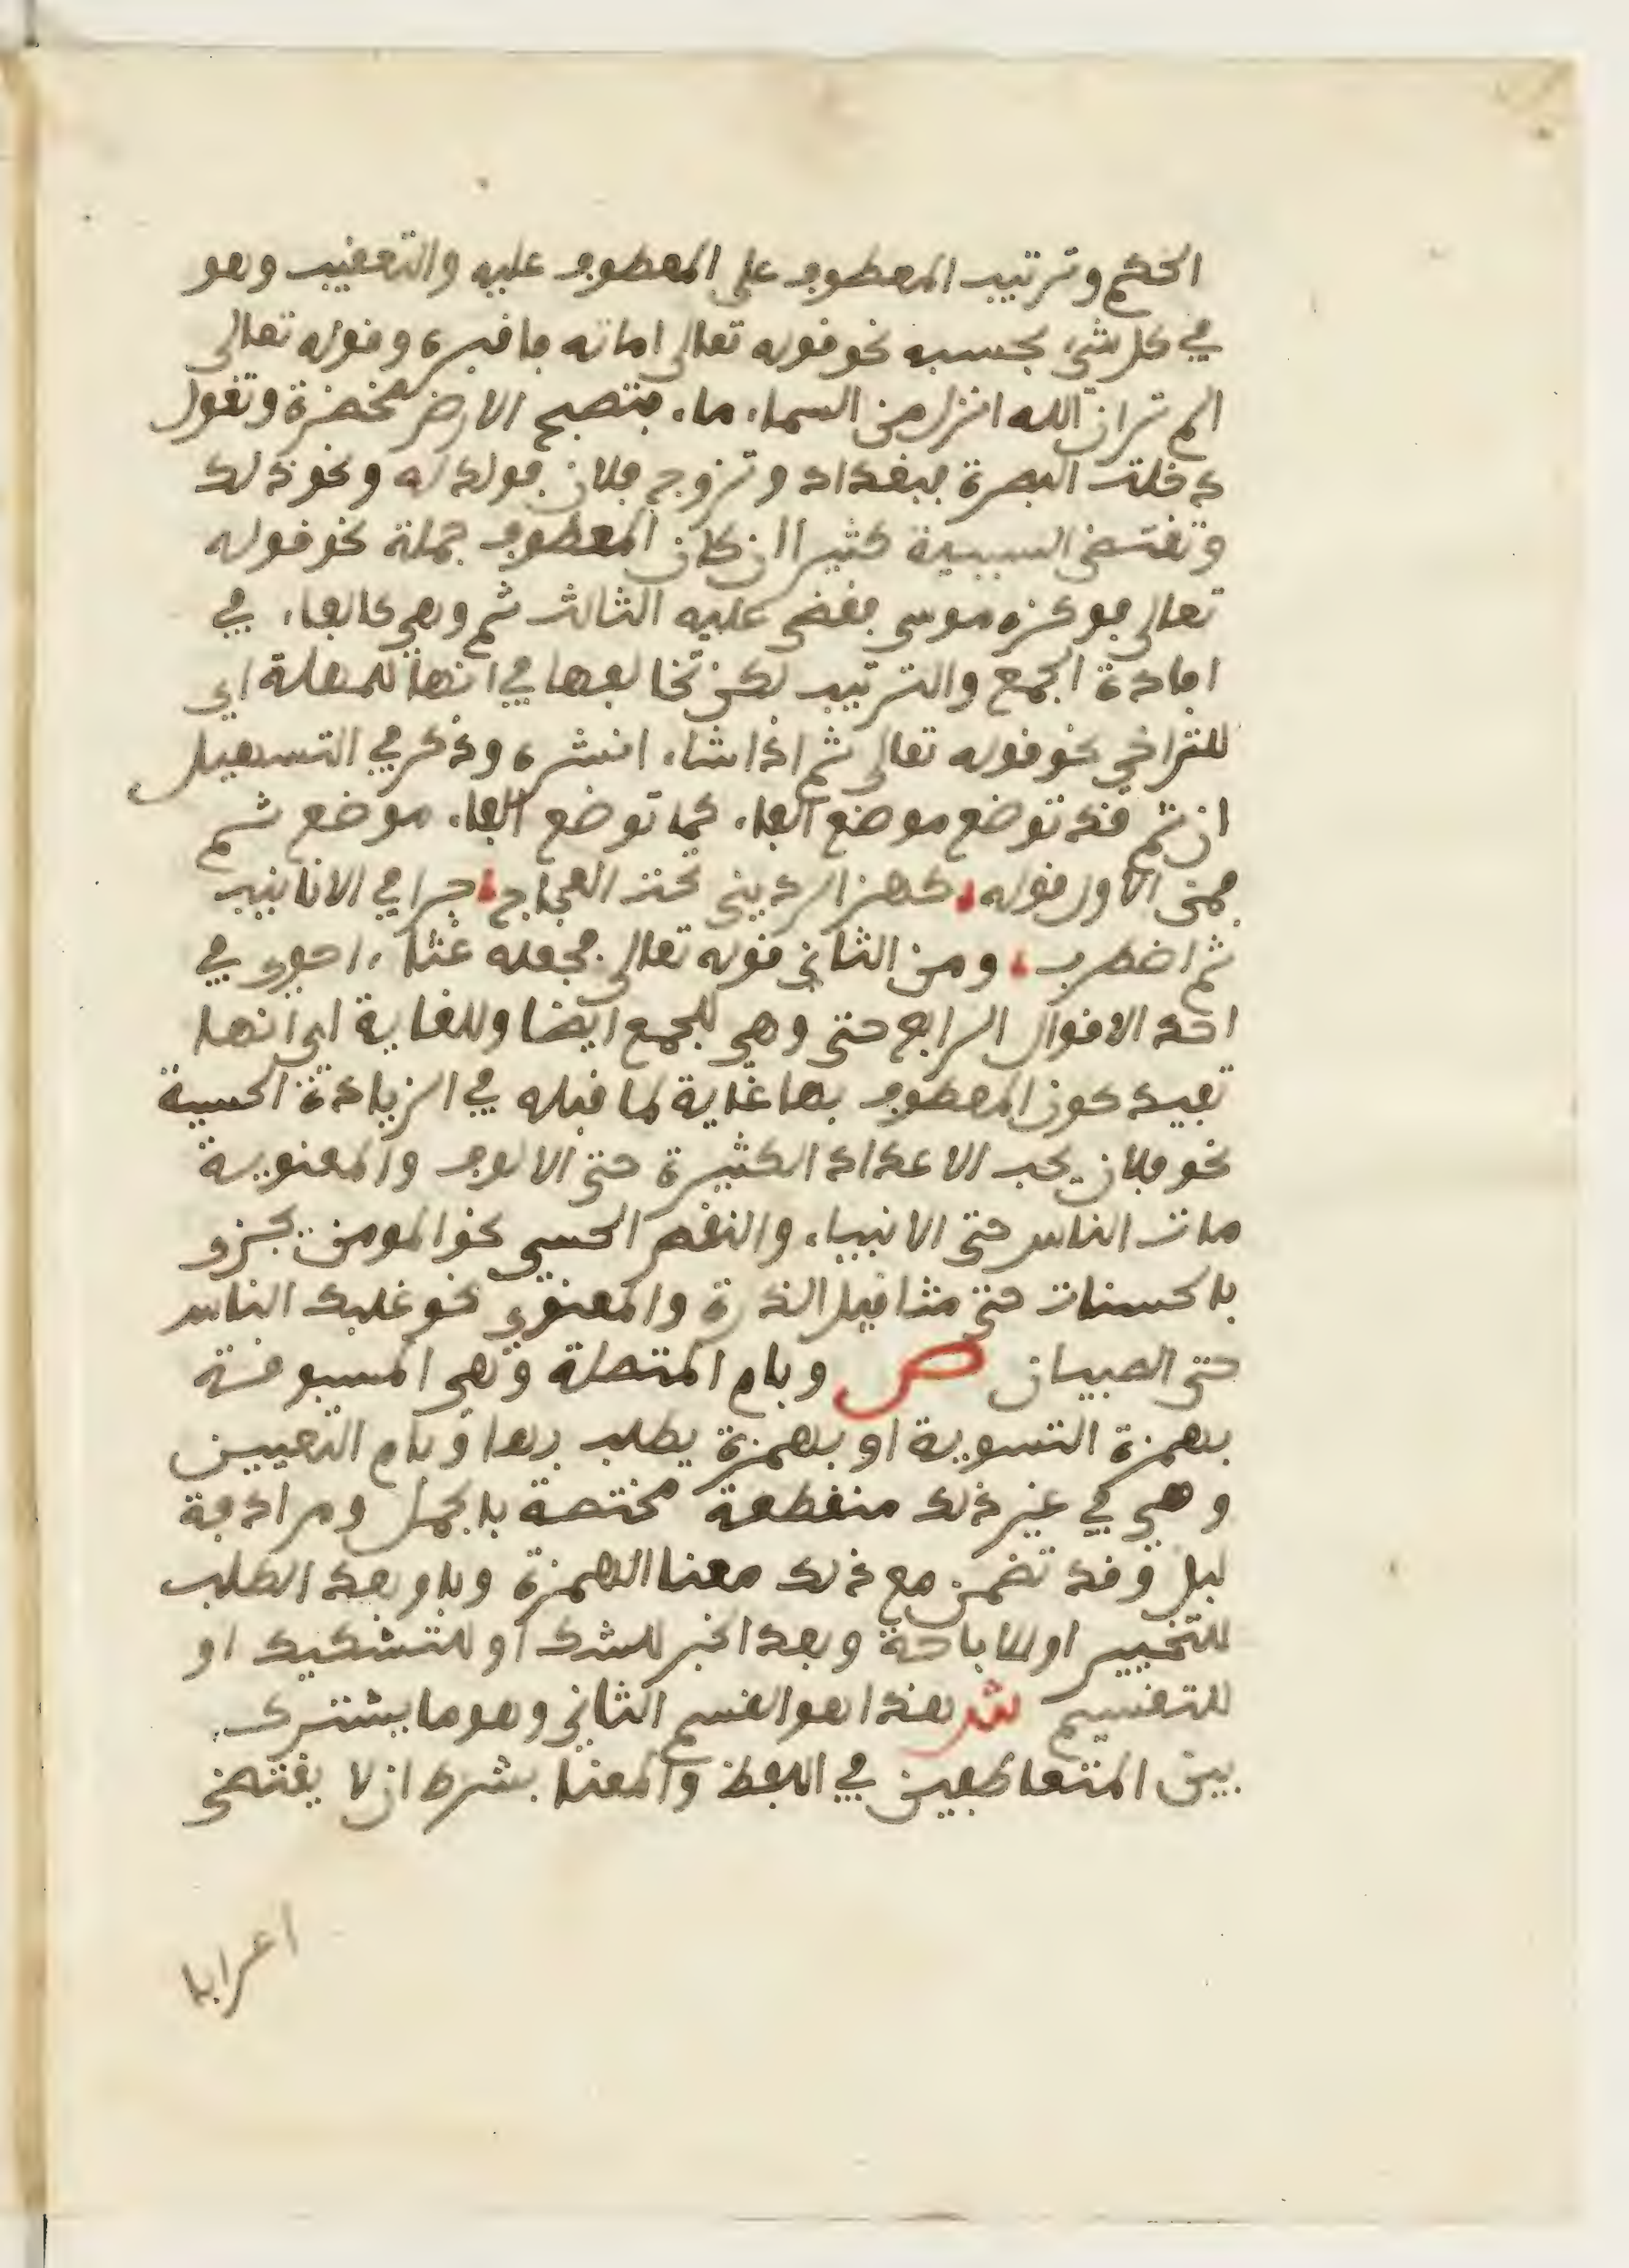 الحكم وترتيب المعطوف على المعطوف عليه والتعقيب وهو
في كل شيء بحسبه نحو قوله تعالى اماته فاقبره وقوله تعالى
الم تر ان الله انزل من السماء ماء فتصبح الارض مخضرة وتقول
دخلت البصرة فبغداد وتزوج فلان فولد له ونحو ذلك
وتقتضي السببية كثيرا ان كان المعطوف جملة نحو قوله
تعالى فوكزه موسى فقضى عليه الثالث ثم وهي كالفاء في
افادة الجمع والترتيب لكن تخالفها في انها للمهلة اي
للتراخي نحو قوله تعالى ثم اذا شاء انشره وذكر في التسهيل
ان ثم قد توضع موضع الفاء كما توضع الفاء موضع ثم
فمن الاول قوله كهز الرديني تحت العجاج جرا في الانابيب
ثم اضطرب ومن الثاني قوله تعالى فجعله غثاء احوى في
احد الاقوال الرابع حتى وهي للجمع ايضا وللغاية اي انها
تفيد كون المعطوف بها غاية لما قبله في الزيادة الحسية
نحو فلان يحب الاعداد الكثيرة حتى الالوف والمعنوية
مات الناس حتى الانبياء والنقص الحسي نحو المومن يجزو
بالحسنات حتى مثاقيل الذرة والمعنوي نحو غلبك الناس
حتى الصبيان ص وبام المتصلة وهي المسبوقة
بهمزة التسوية او بهمزة يطلب بها وبام التعيين
وهي في غير ذلك منقطعة مختصة بالجمل ومرادفة
لبل وقد تضمن مع ذلك معنا الهمزة وباو بعد الطلب
للتخيير او للاباحة وبعد الخبر للشك او للتشكيك او
للتقسيم ش هذا هو القسم الثاني وهو ما يشترك
بين المتعاطفين في اللفظ والمعنا بشرط ان لا يقتضي
اعرابا